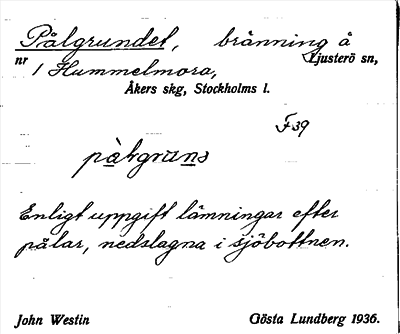 Pålgrundet, bränning å
nr 1 Hummelmora, Ljusterö sn,
Åkers skg, Stockholms l.
F39
Enligt uppgift lämningar efter
pålar, nedslagna i sjöbottnen.
John Westin Gösta Lundberg 1936.